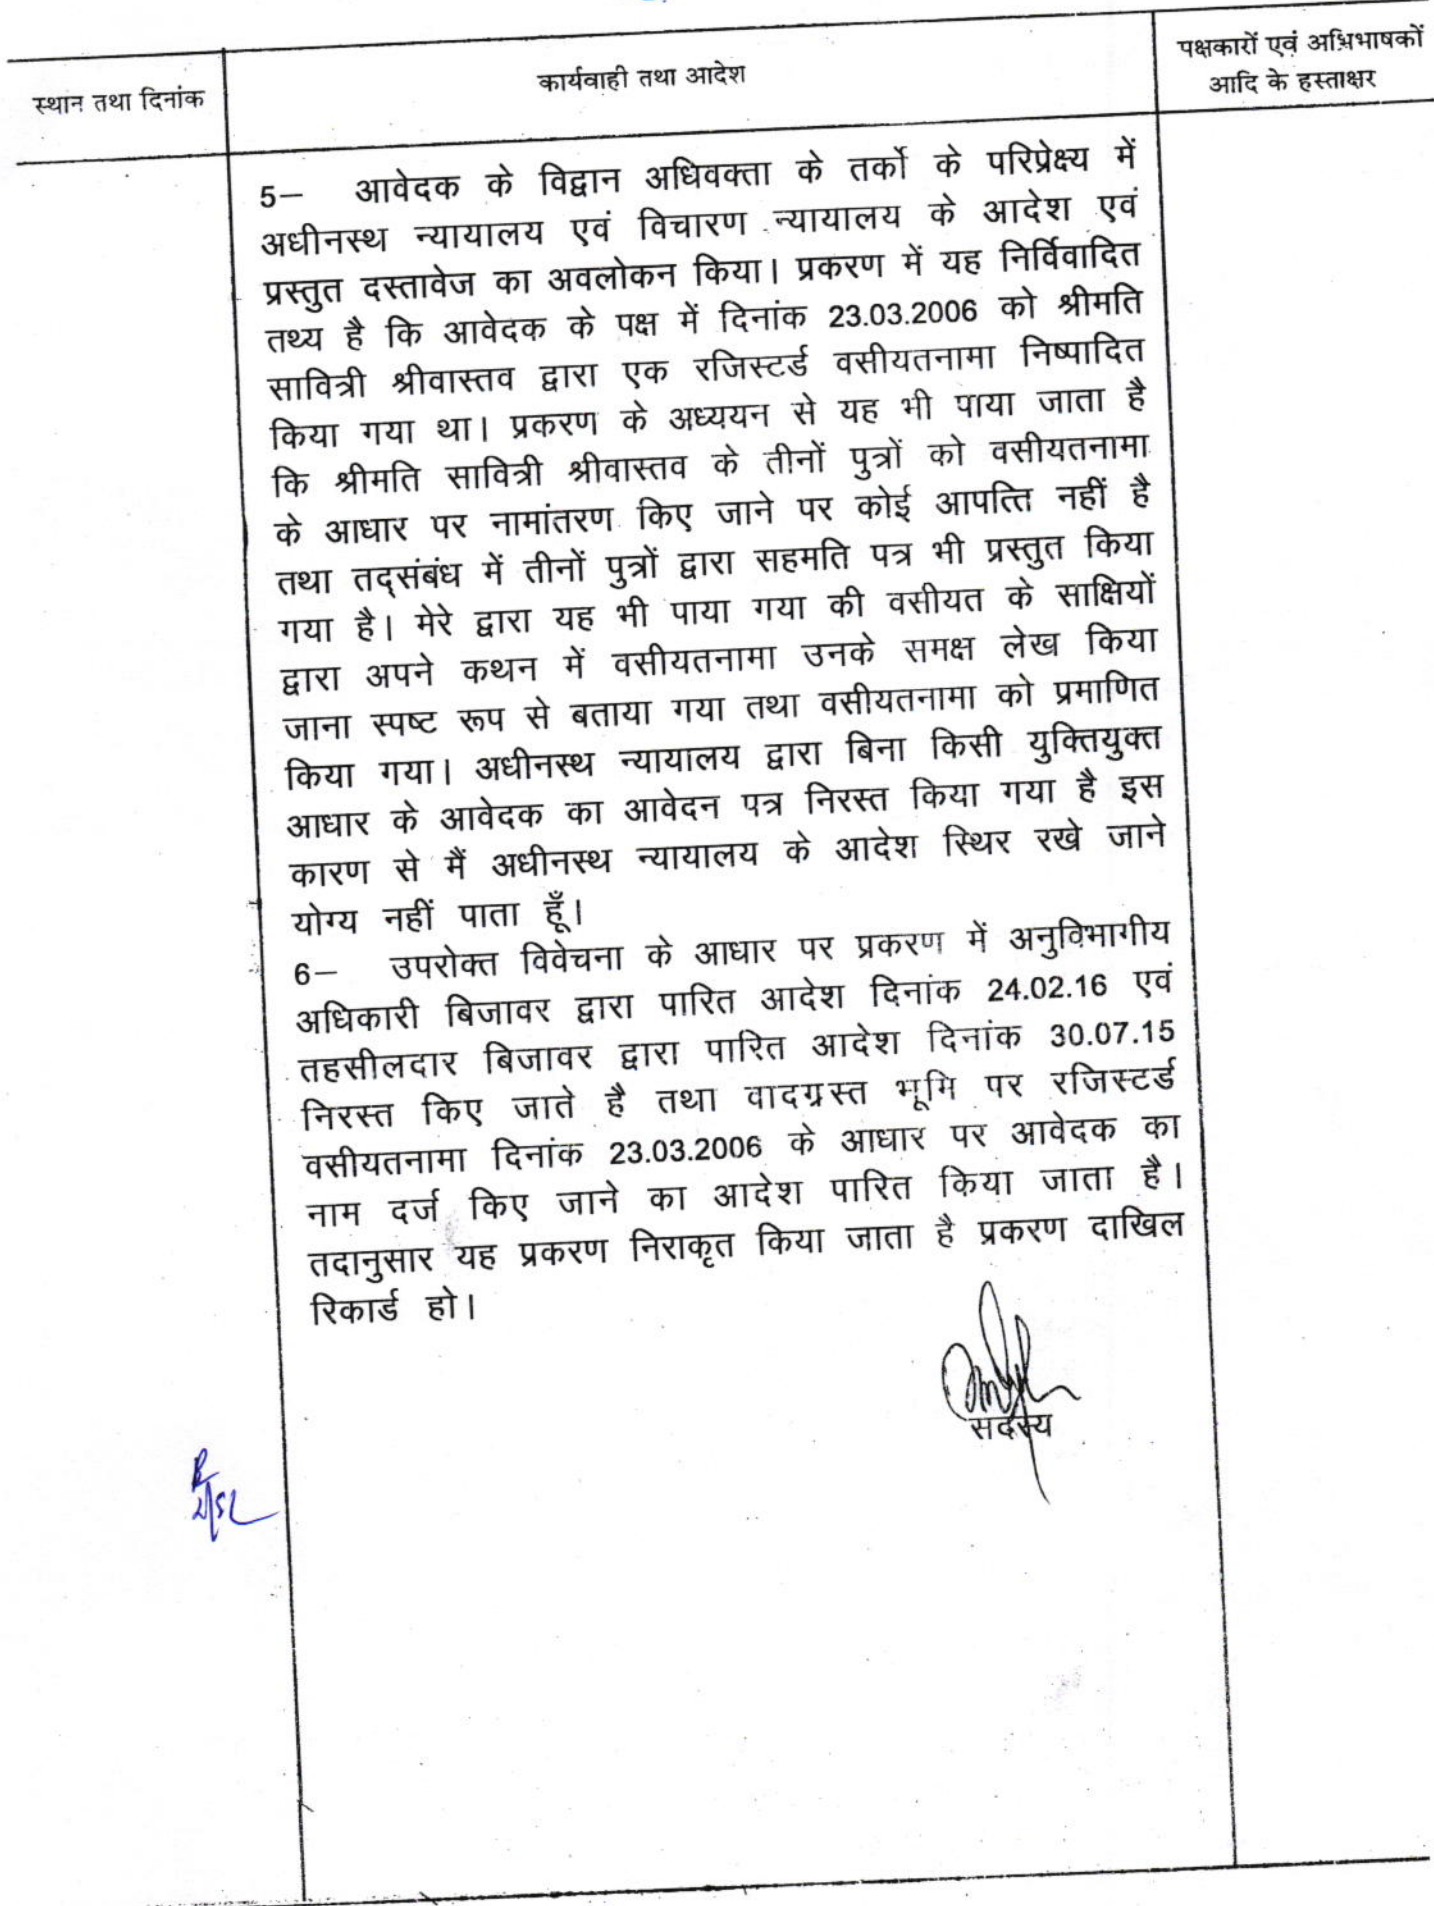 स्थान तथा दिनांक
कार्यवाही तथा आदेश
पक्षकारों एवं अभिभाषकों
आदि के हस्ताक्षर
5— आवेदक के विद्वान अधिवक्ता के तर्को के परिप्रेक्ष्य में
अधीनस्थ न्यायालय एवं विचारण न्यायालय के आदेश एवं
प्रस्तुत दस्तावेज का अवलोकन किया। प्रकरण में यह निर्विवादित
तथ्य है कि आवेदक के पक्ष में दिनांक 23.03.2006 को श्रीमति
सावित्री श्रीवास्तव द्वारा एक रजिस्टर्ड वसीयतनामा निष्पादित
किया गया था। प्रकरण के अध्ययन से यह भी पाया जाता है
कि श्रीमति सावित्री श्रीवास्तव के तीनों पुत्रों को वसीयतनामा
के आधार पर नामांतरण किए जाने पर कोई आपत्ति नहीं है
तथा तद्संबंध में तीनों पुत्रों द्वारा सहमति पत्र भी प्रस्तुत किया
गया है। मेरे द्वारा यह भी पाया गया की वसीयत के साक्षियों
द्वारा अपने कथन में वसीयतनामा उनके समक्ष लेख किया
जाना स्पष्ट रूप से बताया गया तथा वसीयतनामा को प्रमाणित
किया गया। अधीनस्थ न्यायालय द्वारा बिना किसी युक्तियुक्त
आधार के आवेदक का आवेदन पत्र निरस्त किया गया है इस
कारण से मैं अधीनस्थ न्यायालय के आदेश स्थिर रखे जाने
योग्य नहीं पाता हूँ।
6— उपरोक्त विवेचना के आधार पर प्रकरण में अनुविभागीय
अधिकारी बिजावर द्वारा पारित आदेश दिनांक 24.02.16 एवं
तहसीलदार बिजावर द्वारा पारित आदेश दिनांक 30.07.15
निरस्त किए जाते है तथा वादग्रस्त भूमि पर रजिस्टर्ड
वसीयतनामा दिनांक 23.03.2006 के आधार पर आवेदक का
नाम दर्ज किए जाने का आदेश पारित किया जाता है।
तदानुसार यह प्रकरण निराकृत किया जाता है प्रकरण दाखिल
रिकार्ड हो।
सदस्य